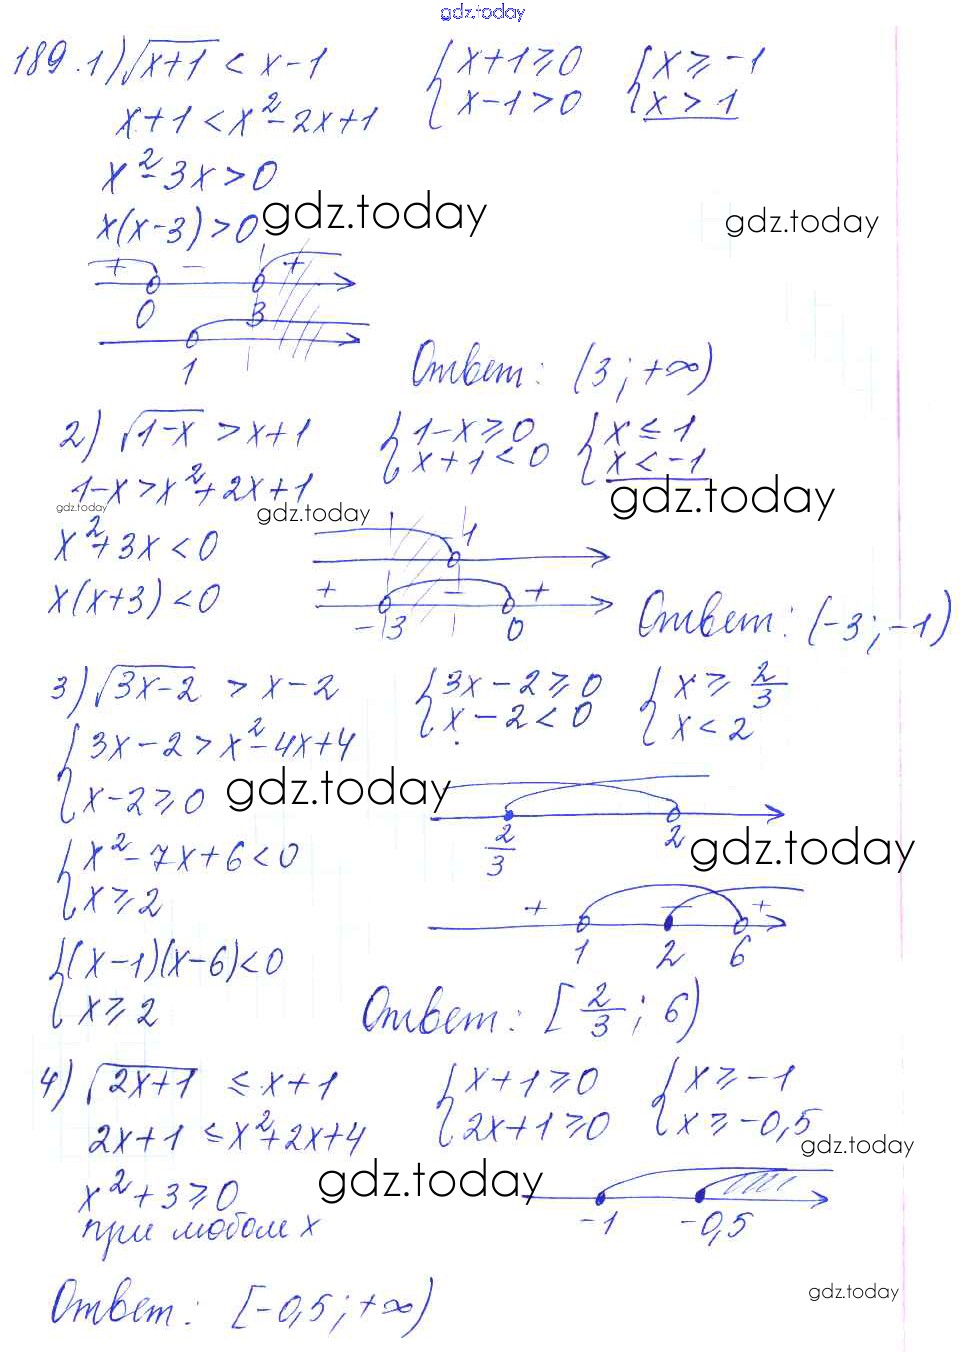 gdz.today
189.1) √(x+1) < x-1 {x+1≥0 {x≥-1
x+1 < x²-2x+1 {x-1>0 {x>1
x²-3x>0
x(x-3)>0 gdz.today gdz.today
+ - +
0 3
1
Ответ: (3; +∞)
2) √(1-x) > x+1 {1-x≥0 {x≤1
1-x > x²+2x+1 {x+1<0 {x<-1
gdz.today gdz.today gdz.today
x²+3x<0 -1
x(x+3)<0 + - +
-3 0
Ответ: (-3; -1)
3) √(3x-2) > x-2 {3x-2≥0 {x≥2/3
{3x-2 > x²-4x+4 {x-2<0 {x<2
{x-2≥0 gdz.today
2/3 2 gdz.today
{x²-7x+6<0
{x≥2 + - +
1 2 6
{(x-1)(x-6)<0
{x≥2 Ответ: [2/3; 6)
4) √(2x+1) ≤ x+1 {x+1≥0 {x≥-1
2x+1 ≤ x²+2x+4 {2x+1≥0 {x≥-0,5
gdz.today
x²+3≥0 gdz.today
при любом x -1 -0,5
Ответ: [-0,5; +∞)
gdz.today